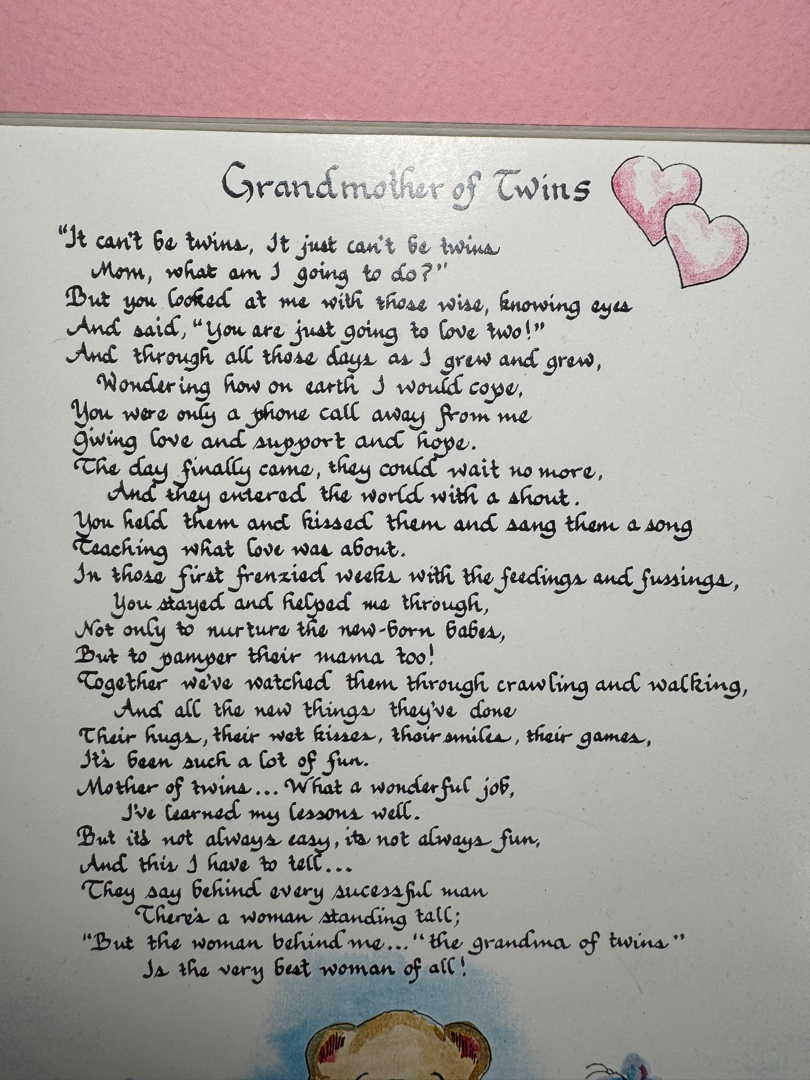 Grandmother of Twins
"It can't be twins, It just can't be twins
Mom, what am I going to do?"
But you looked at me with those wise, knowing eyes
And said, "You are just going to love two!"
And through all those days as I grew and grew,
Wondering how on earth I would cope,
You were only a phone call away from me
Giving love and support and hope.
The day finally came, they could wait no more,
And they entered the world with a shout.
You held them and kissed them and sang them a song
Teaching what love was about.
In those first frenzied weeks with the feedings and fussings,
You stayed and helped me through,
Not only to nurture the new-born babes,
But to pamper their mama too!
Together we've watched them through crawling and walking,
And all the new things they've done
Their hugs, their wet kisses, their smiles, their games,
It's been such a lot of fun.
Mother of twins... What a wonderful job,
I've learned my lessons well.
But it's not always easy, its not always fun,
And this I have to tell...
They say behind every sucessful man
There's a woman standing tall;
"But the woman behind me..." the grandma of twins"
Is the very best woman of all!